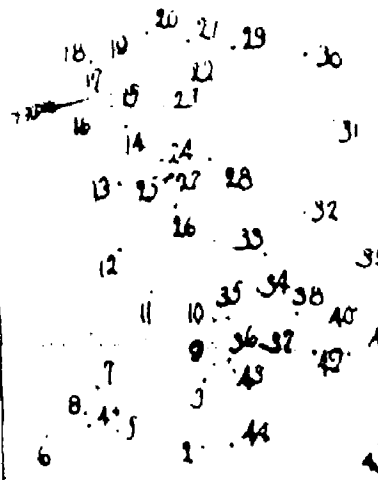 20 21 29
18 19 30
17 22
15 21
16 31
14 24
13 25 27 28
26 32
33
12
34
35 38
11 10 40
9 36 37 42
7 43
3
8 4 5
6 2 44